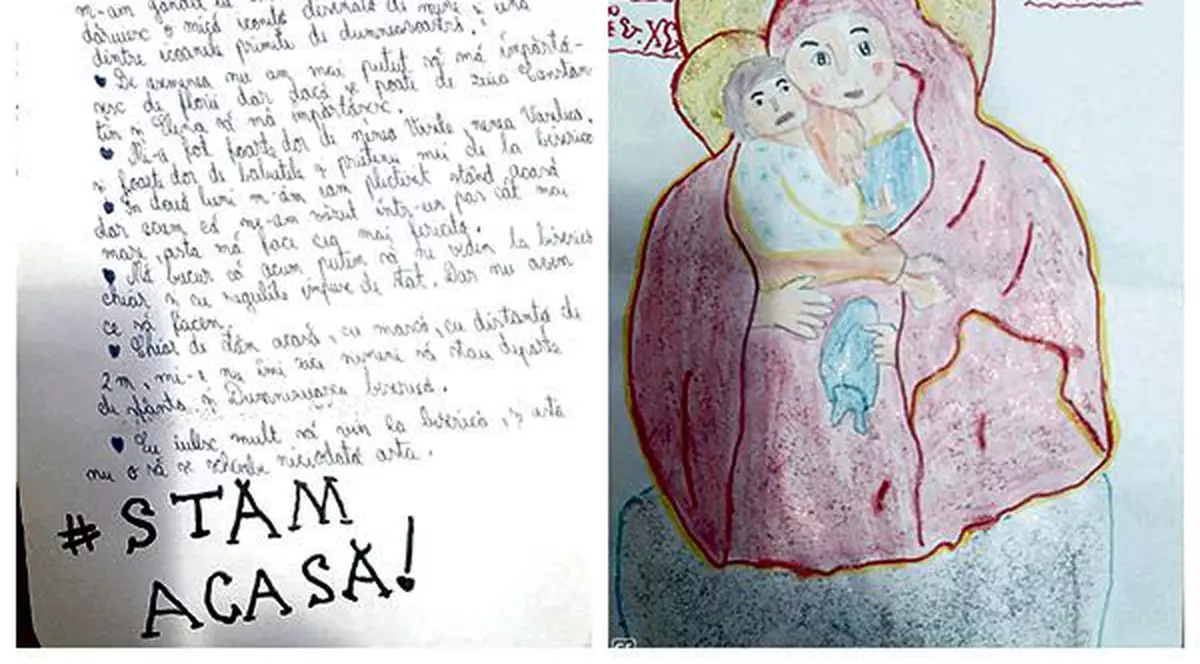 m-am gândit
dăruiesc o mică iconiță desenată de mine, și una
dintre icoanele primite de dumneavoastră.
De asemenea nu am mai putut să mă împărtă-
șesc de florii dar dacă se poate de ziua Constan
tin și Elena să mă împărtășesc.
Mi-a fost foarte dor de nenea Vasile, nenea Vasilică,
și foarte dor de băieții și prietenii mei de la biserică
În două luni m-am cam plictisit stând acasă
dar acum că ne-am văzut într-un par cât mai
mare, asta mă face mai fericită.
Mă bucur că acum putem să ne vedem la biserică
chiar și cu regulile impuse de stat. Dar nu avem
ce să facem.
Chiar de stăm acasă, cu mască, cu distanță de
2 m, mi-e nu îmi zice nimeni să stau departe
de sfânta și Dumnezeiasca biserică.
Eu iubesc mult să vin la biserică, și asta
nu o să se schimbe niciodată asta.
#STĂM
ACASĂ!